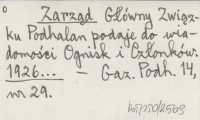 Zarząd Główny Związ-
ku Podhalan podaje do wia-
domości Ognisk i Członków.
1926... — Gaz. Podh. 14,
nr 29.